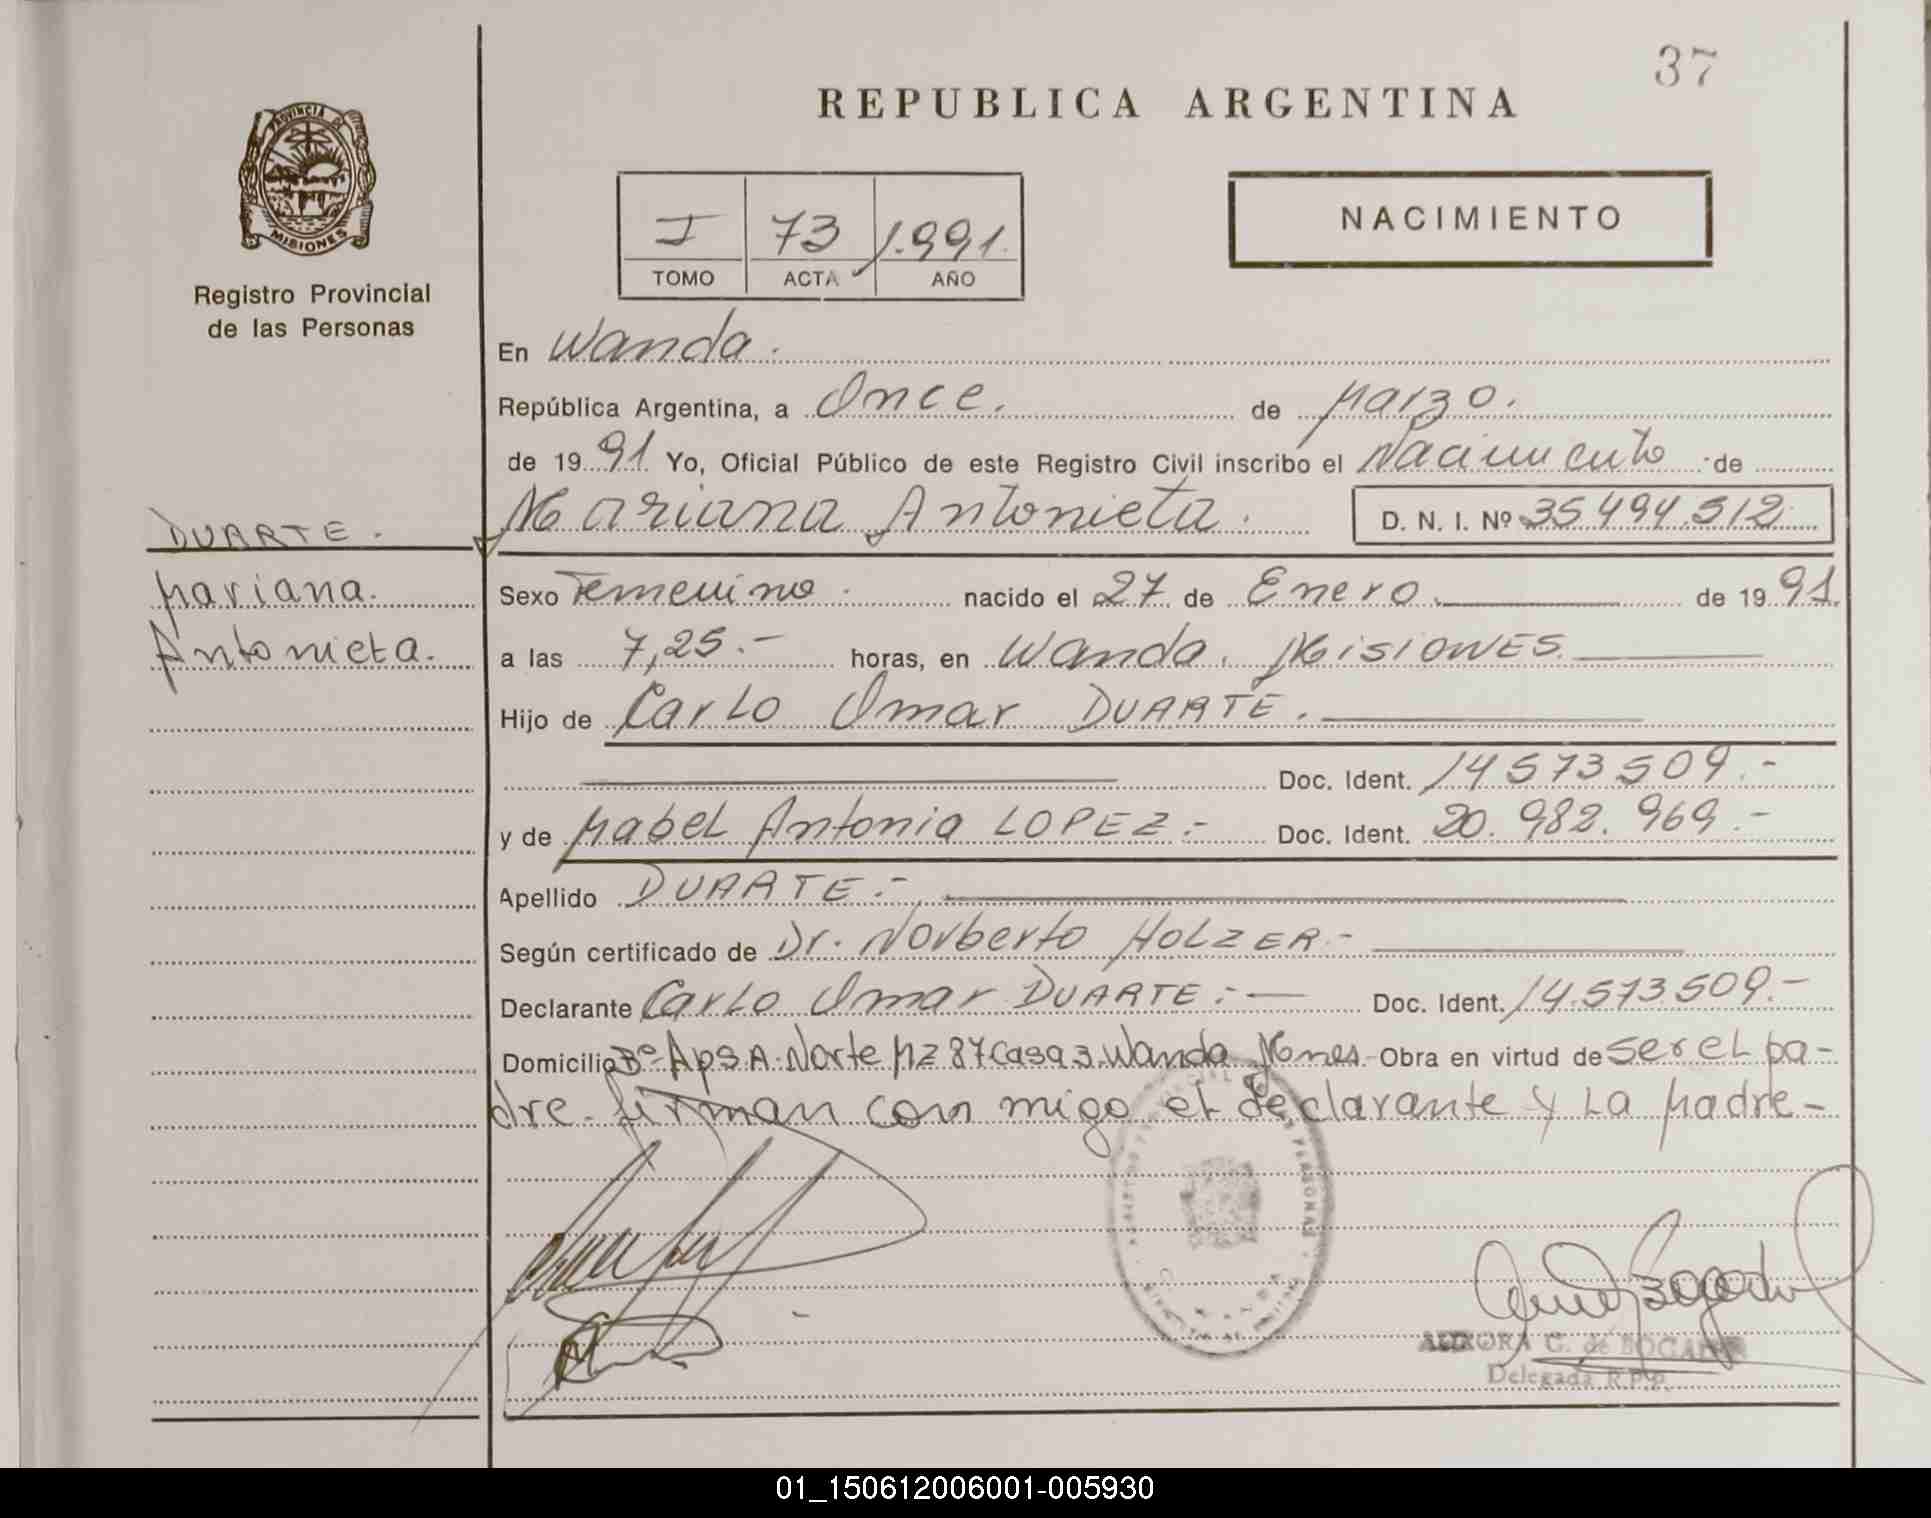 37
REPUBLICA ARGENTINA
PROVINCIA DE
MISIONES
Registro Provincial
de las Personas
I 73 1.991.
TOMO ACTA AÑO
NACIMIENTO
En Wanda.
República Argentina, a Once. de Marzo.
de 1991 Yo, Oficial Público de este Registro Civil inscribo el Nacimiento de
Mariana Antonieta. D. N. I. Nº 35.494.512
DUARTE.
Mariana.
Antonieta.
Sexo Femenino. nacido el 27 de Enero. de 1991.
a las 7,25.- horas, en Wanda. Misiones.
Hijo de Carlo Omar DUARTE.
Doc. Ident. 14.573.509.-
y de Mabel Antonia LOPEZ.- Doc. Ident. 20.982.969.-
Apellido DUARTE.-
Según certificado de Dr. Norberto HOLZER.-
Declarante Carlo Omar DUARTE.- Doc. Ident. 14.573.509.-
Domicilio Bº Apsa. Norte Mz 87 Casa 3. Wanda Mnes. Obra en virtud de ser el pa-
dre. firman con migo el declarante y La Madre-
AURORA G. de
Delegada R.P.P.
01_150612006001-005930